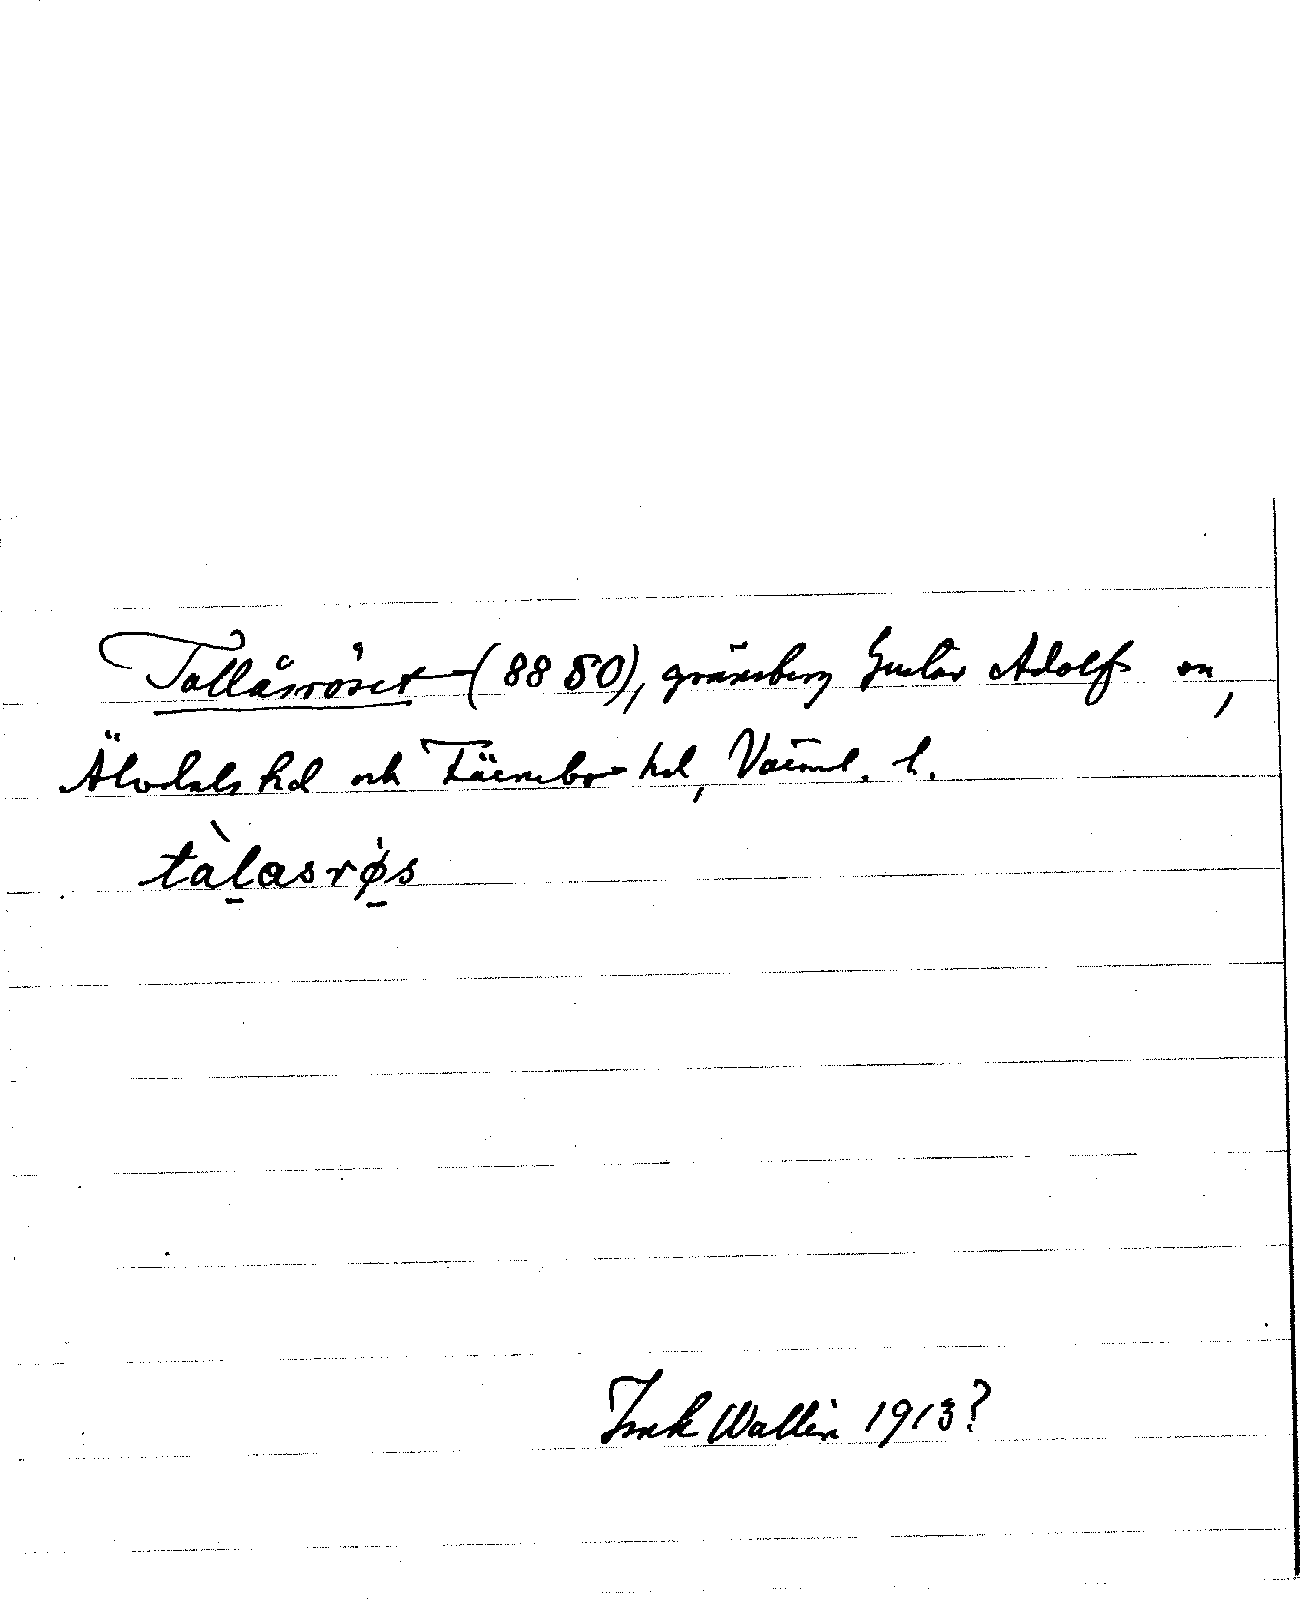 Tallåsröset (8850), gränsberg Gustav Adolfs sn,
Älvdals hd och Färnebo hd, Värml. l.
tàḷasrø̀s
Wallin 1913?